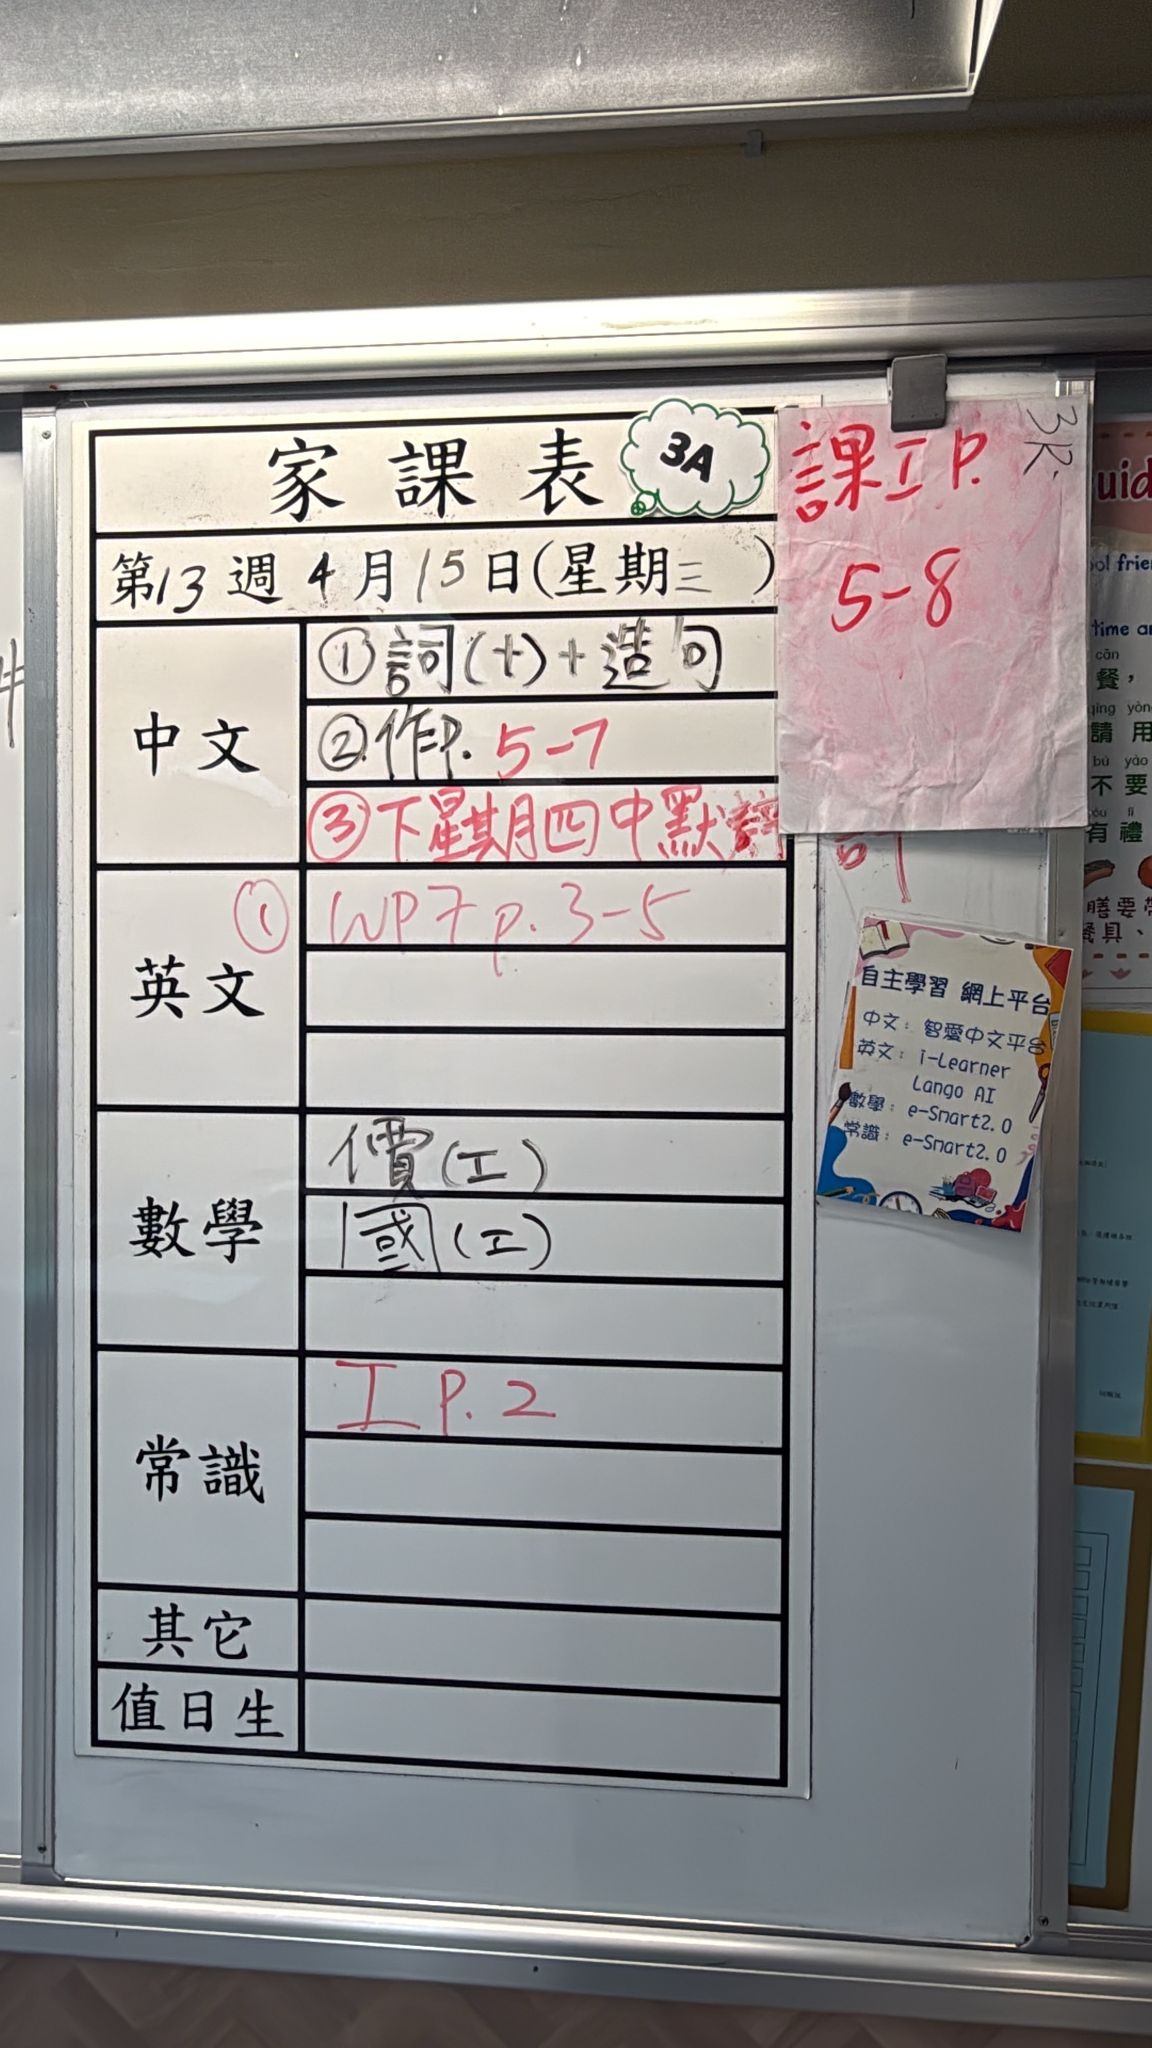 家課表
3A
第13週 4月15日(星期三 )
中文
①詞(十)+造句
②作P. 5-7
③下星期四中默
英文
① WP7 p.3-5
數學
價(工)
國(工)
常識
工 P.2
其它
值日生
3R.
課工 P.
5-8
自主學習 網上平台
中文：智愛中文平台
英文：i-Learner
Lango AI
數學：e-Smart2.0
常識：e-Smart2.0
uid
ool frie
time a
cān
餐，
qǐng yòn
請用
bú yào
不要
yǒu lǐ
有禮
膳要帶
餐具、